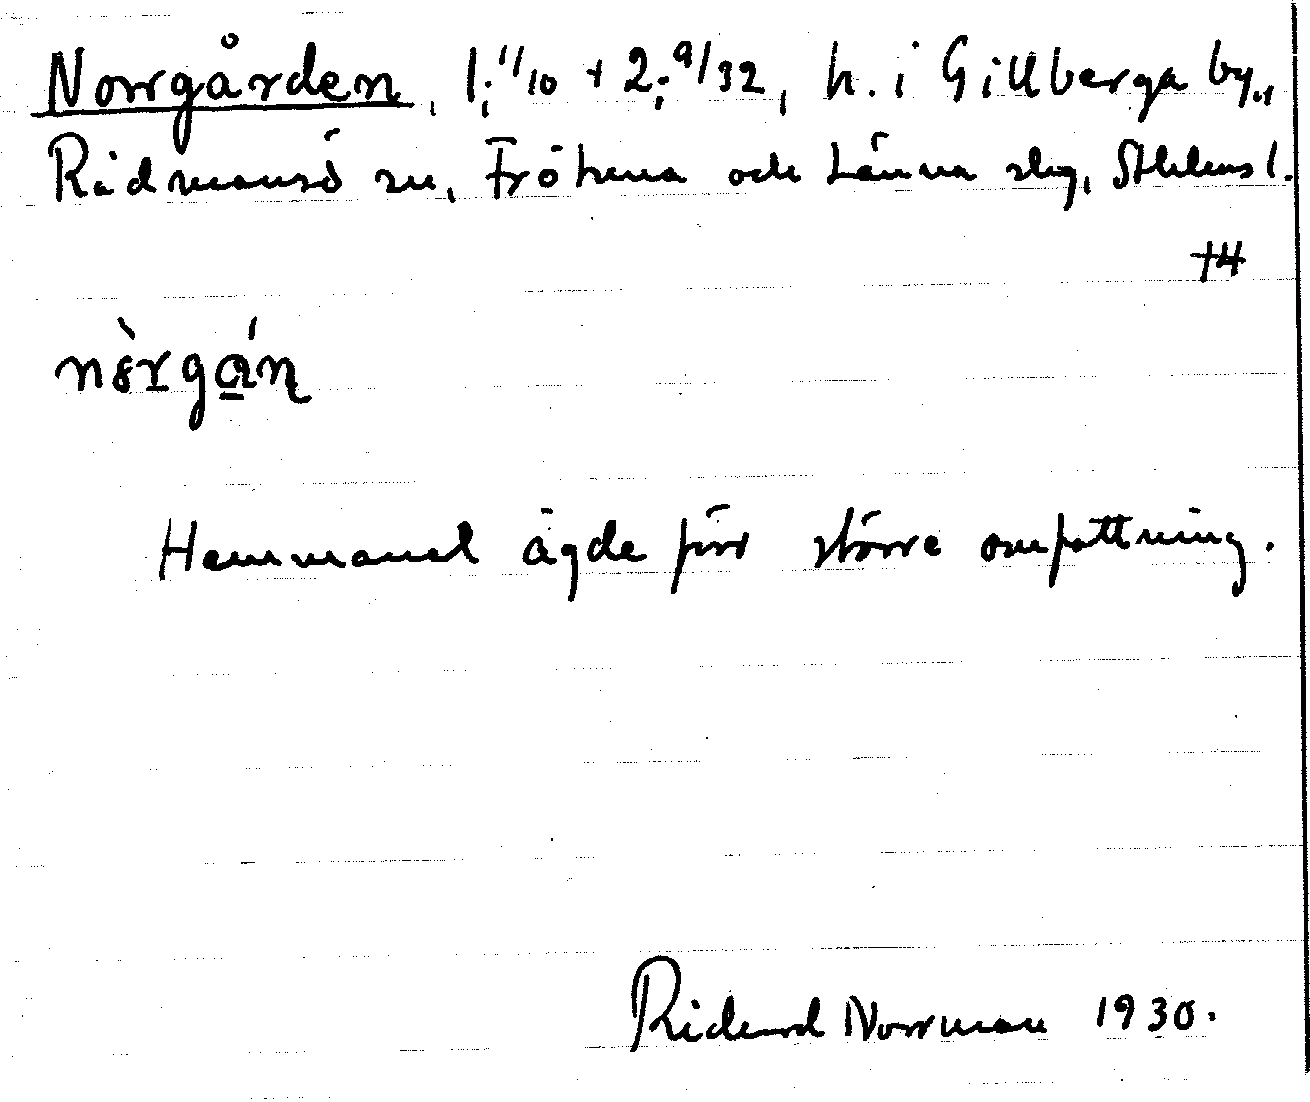 Norrgården, 1; 11/10 + 2; 9/32, h. i Gillberga by,
Rådmansö sn, Frötuna och Länna slg, Sthlms l.
+4
nòrgán
Hemmanet ägde förr större omfattning.
Rickard Norrman 1930.